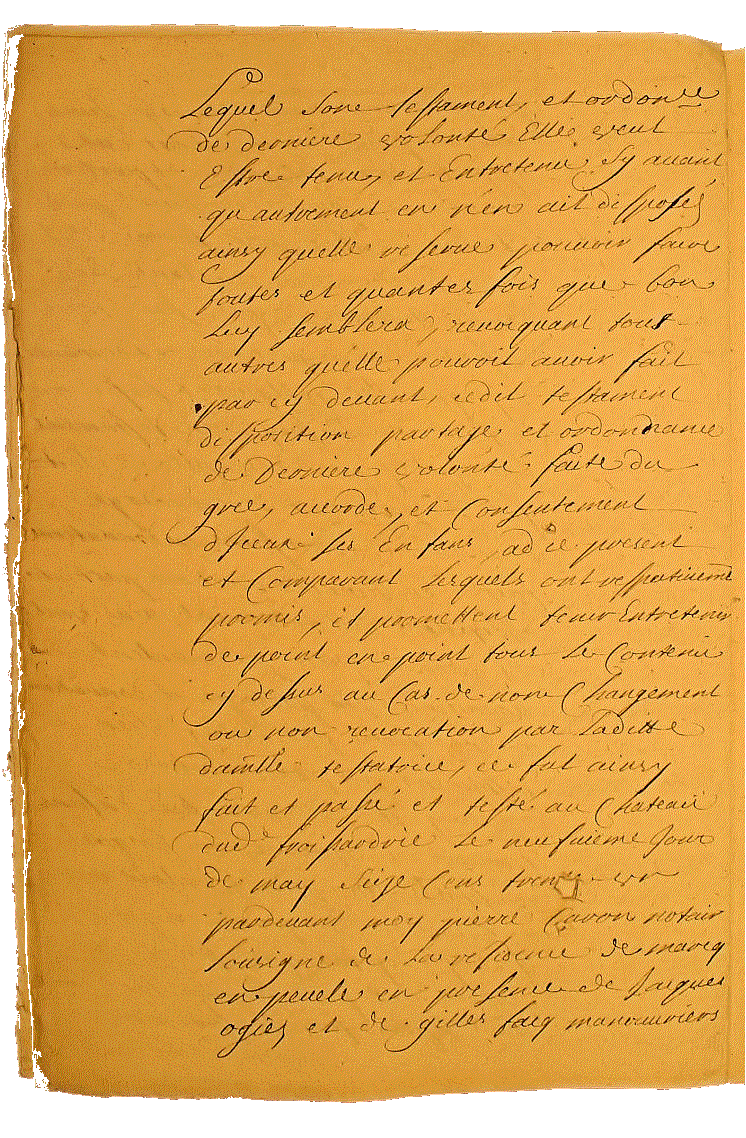 Lequel sone testament, et ordonce
de derniere volonté Elle veut
Estre tenu, et Entretenu Sy avant
qu autrement en n'en ait disposéz
ainsy quelle reserve pouvoir faire
toutes et quantes fois que bon
Luy semblera, revocquant tous
autres quelle pouvoit avoir fait
par cy devant, cedit testament
disposition partage et ordonnance
de Derniere volonté faite du
gree, accorde, et Consentement
d'Jceux ses Enfans, ad ce present
et Comparant Lesquels ont respectivemt
promis, et promettent tenir Entretenir
de point en point tous le Contenu
cy dessus au Cas de non Changement
ou non revocation par laditte
damlle testatrice, ce fut ainsy
fait et passé et testé au Chateau
dud le neufvieme Jour
de may Seize Cens trente
pardevant moy pierre Caron notair
sousigne de La residence de marcq
en pevele en presence de Jacques
ogiez et de gilles facq manouvriers